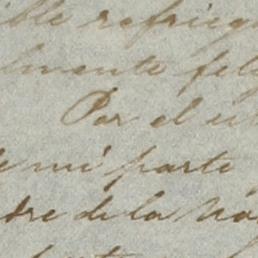 ible refrieg
lmente feli
Por el in
de mi parte
dre de la Na